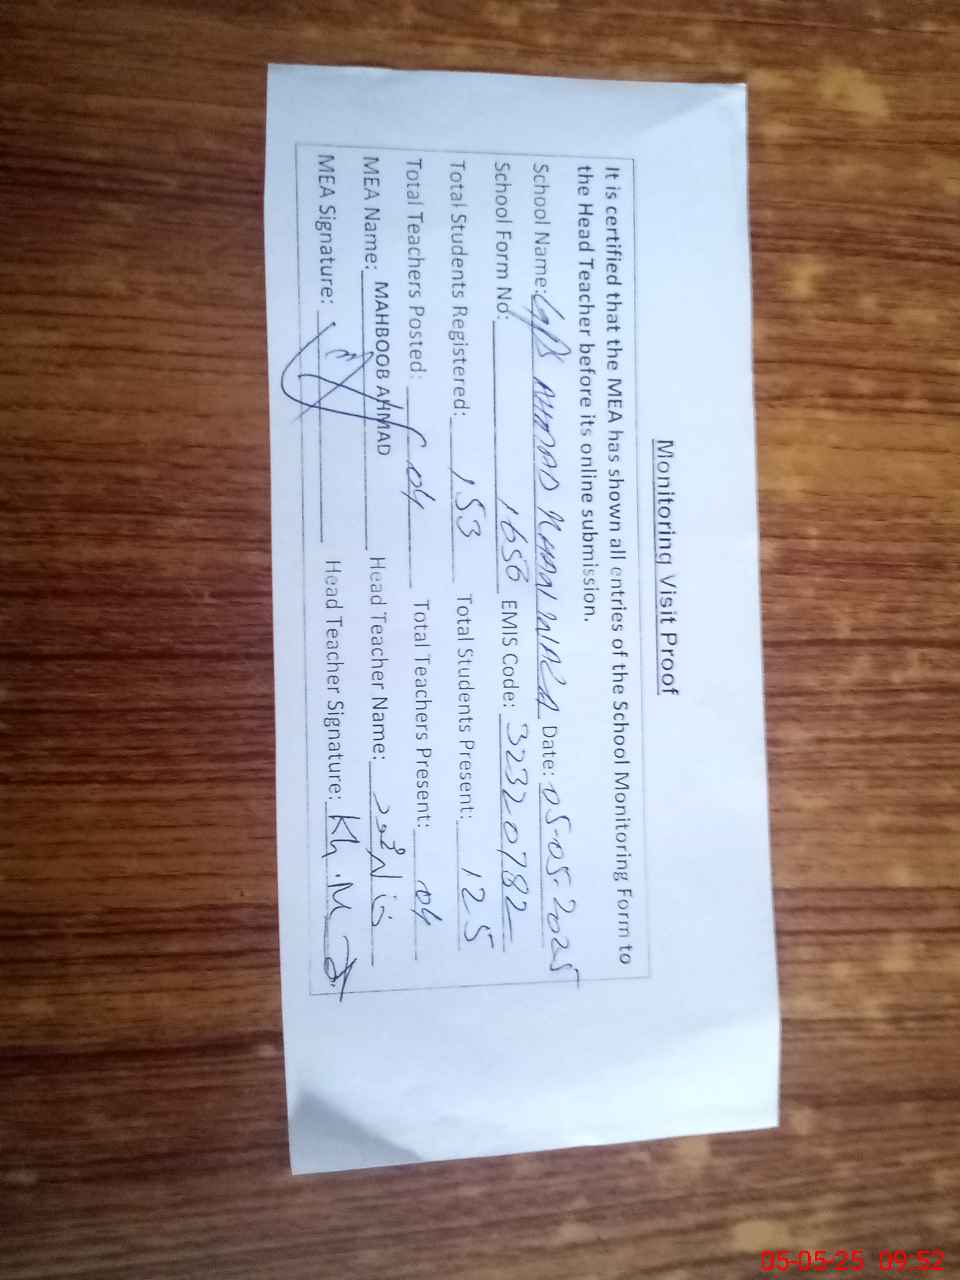 Monitoring Visit Proof
It is certified that the MEA has shown all entries of the School Monitoring Form to
the Head Teacher before its online submission.
School Name: AHMAD Date: 05-05-2025
School Form No: 1656 EMIS Code: 32320782
Total Students Registered: 153 Total Students Present: 125
Total Teachers Posted: 04 Total Teachers Present: 04
MEA Name: MAHBOOB AHMAD Head Teacher Name:
MEA Signature: Head Teacher Signature: Kh.M
05-05-25 09:52